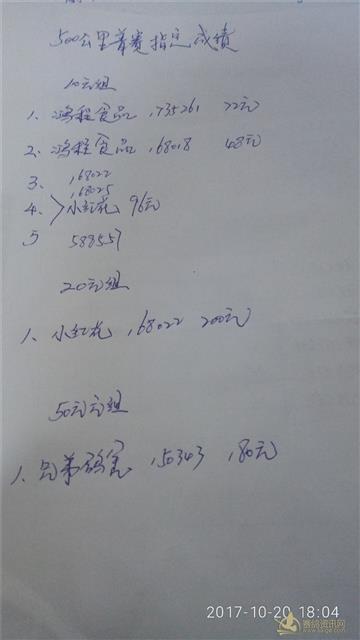 500公里首赛指定成绩
10元组
1、鸿程食品,735261 72元
2、鸿程食品,68018 48元
3、,68022
,68025
4、>小红花 96元
5 588557
20元组
1、小红花,68022 200元
50元组
1、兄弟鸽舍,50343 ,80元
2017-10-20 18:04
赛鸽资讯网